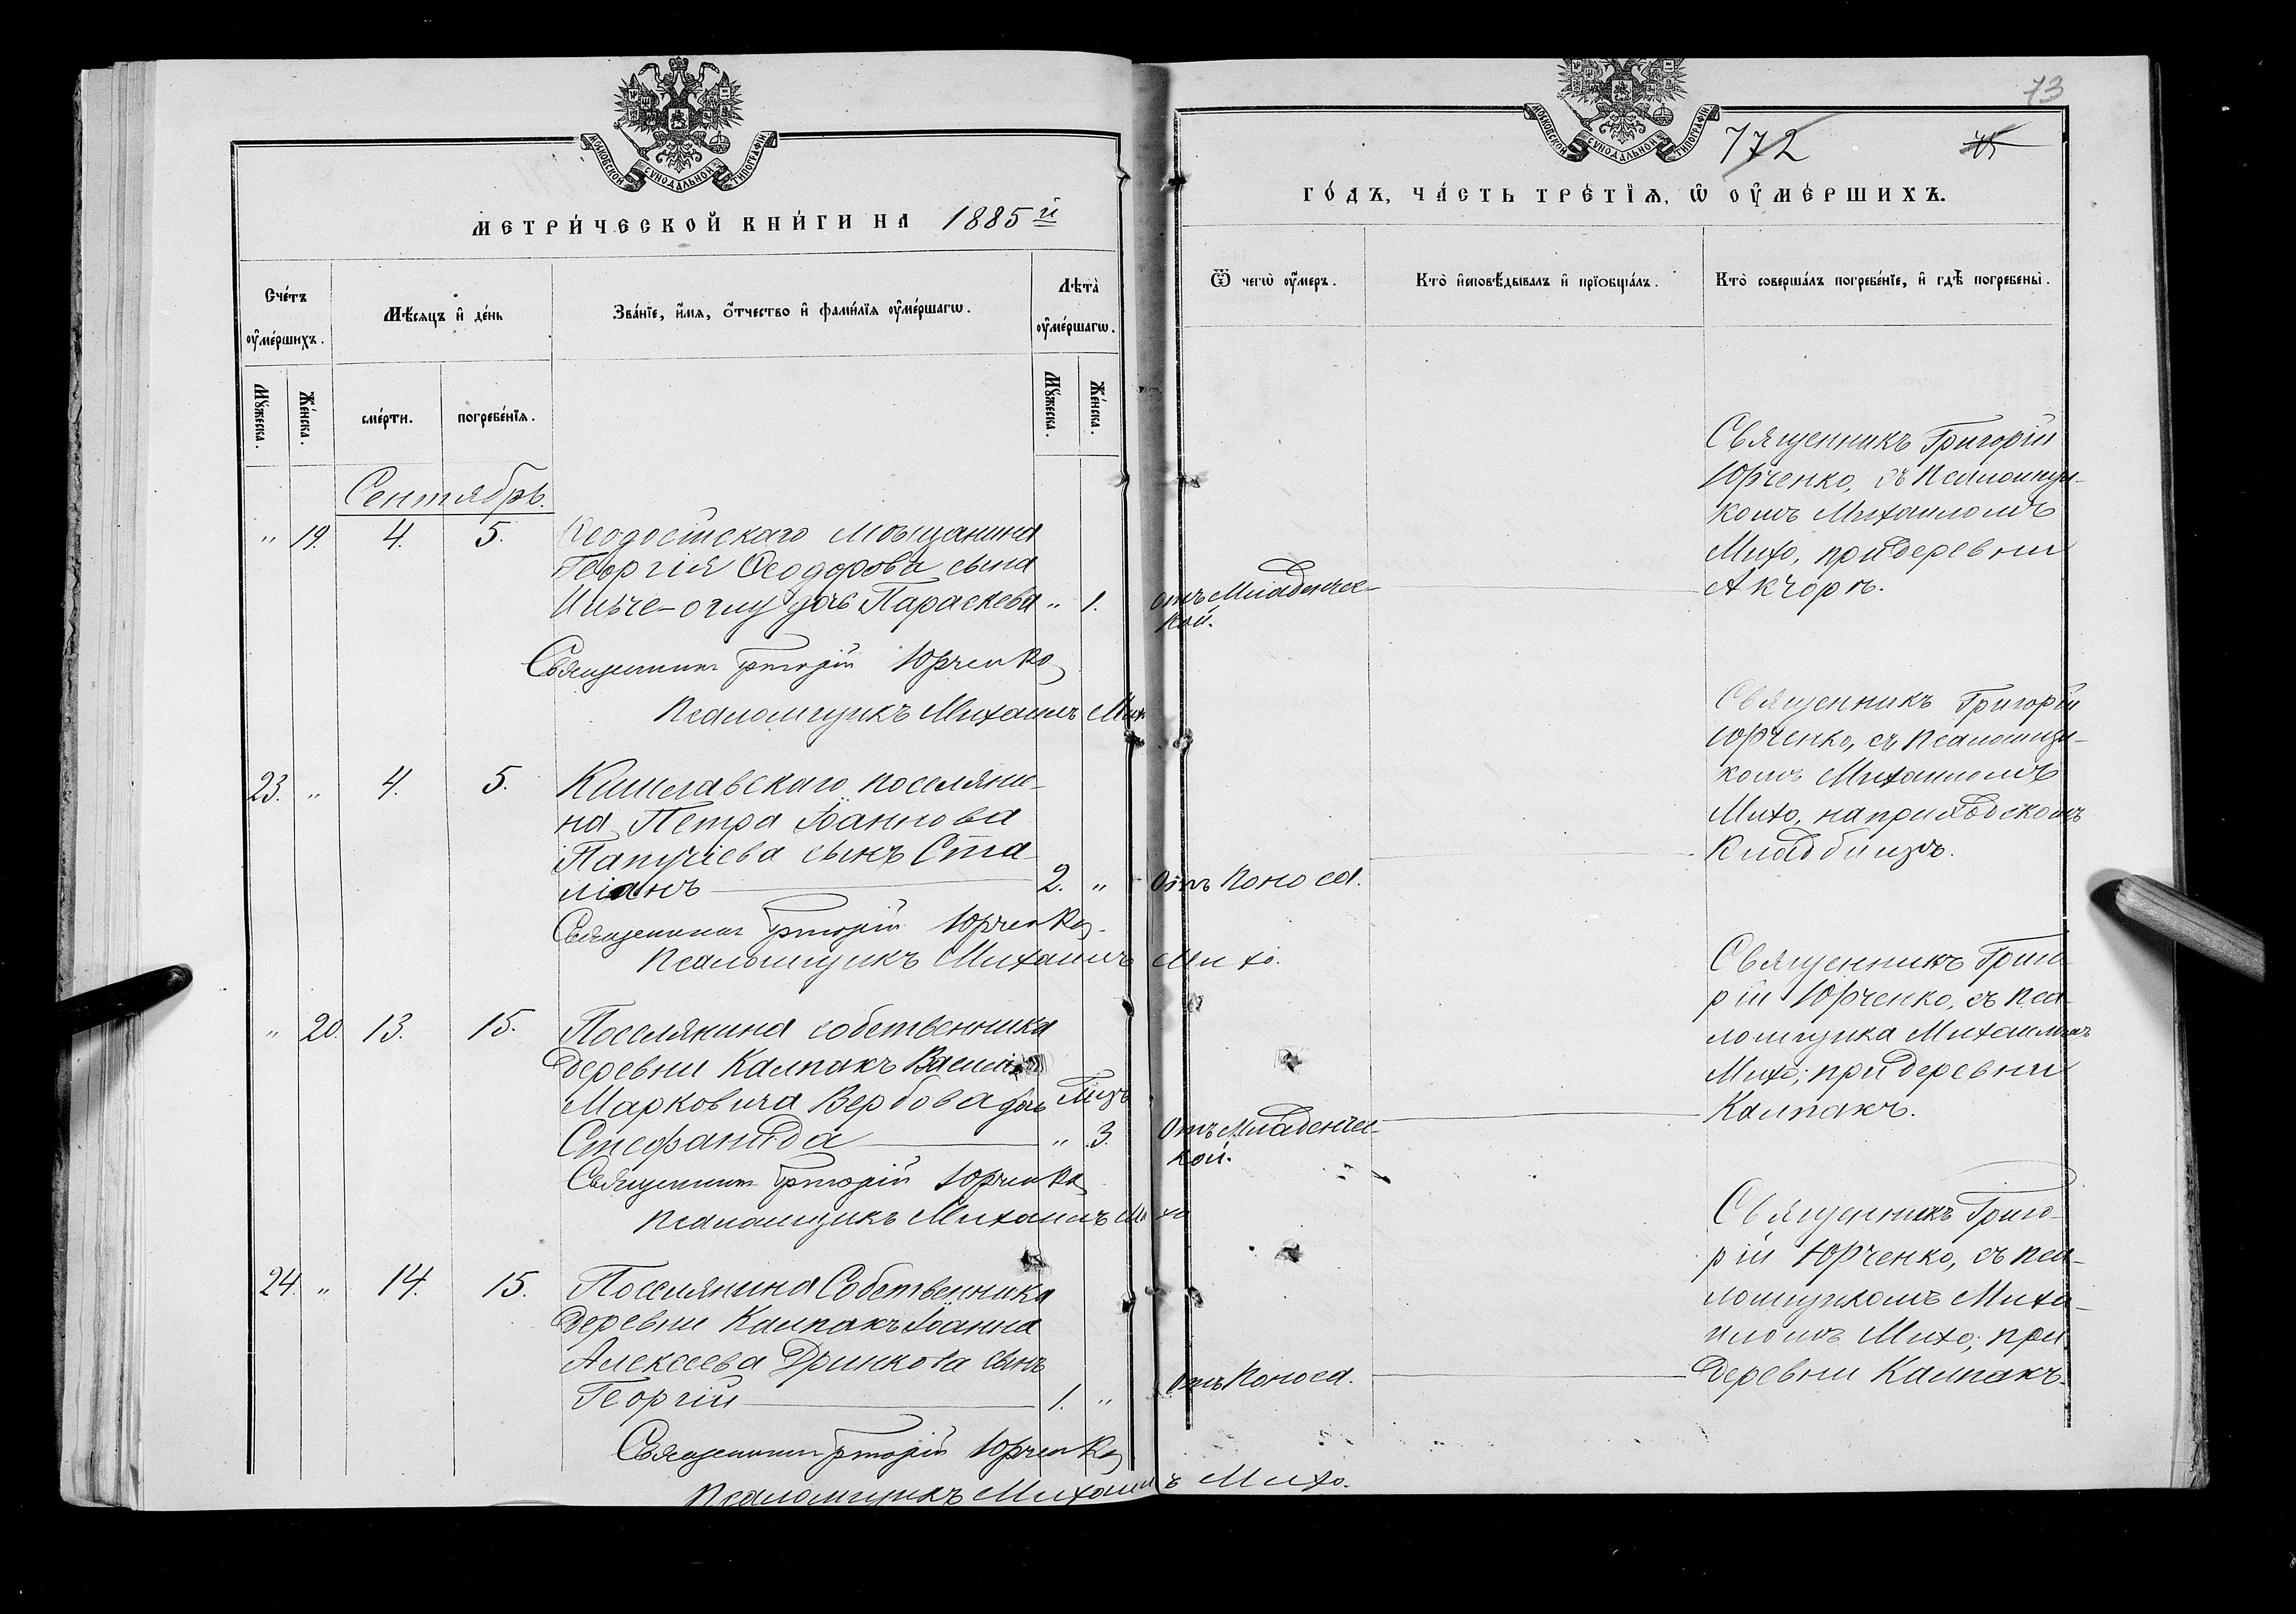 МОСКОВСКОЙ СУНОДАЛЬНОЙ ТИПОГРАФІИ
МЕТРИ́ЧЕСКОЙ КНИ́ГИ НА 1885 й
Сче́тъ ᲂу҆ме́ршихъ.
Мѣ́сяцъ и҆ де́нь
Зва́нїе, и҆́мѧ, ѻ҆́тчество и҆ фами́лїѧ ᲂу҆ме́ршагѡ.
Лѣ́та ᲂу҆ме́ршагѡ.
Мꙋ́жеска.
Же́нска.
сме́рти.
погребе́нїѧ.
Мꙋ́жеска.
Же́нска.
Сентябрь.
" 19. 4. 5. Ѳеодосійскаго мѣщанина
Георгія Ѳеодорова сына
Инче-оглу дочь Параскева " 1.
Священникъ Григорій Юрченко
Псаломщикъ Михаилъ Михо
23. " 4. 5. Кишлавскаго поселяни-
на Петра Іоаннова
Папучіева сынъ Ста-
ліанъ 2. "
Священникъ Григорій Юрченко
Псаломщикъ Михаилъ Михо.
" 20. 13. 15. Поселянина собственника
деревни Калпакъ Василія
Марковича Вербова дочь
Стефанида " 3.
Священникъ Григорій Юрченко
Псаломщикъ Михаилъ Михо
24. " 14. 15. Поселянина Собственника
деревни Калпакъ Іоанна
Алексеева Дринкова сынъ
Георгій 1. "
Священникъ Григорій Юрченко
Псаломщикъ Михаилъ Михо.
73
МОСКОВСКОЙ СУНОДАЛЬНОЙ ТИПОГРАФІИ
772
ГО́ДЪ, ЧА́СТЬ ТРЕ́ТЇѦ, Ѡ ОУ҆МЕ́РШИХЪ.
Ѿ чегѡ̀ ᲂу҆́меръ.
Кто̀ и҆сповѣ́дывалъ и҆ прїѡбща́лъ.
Кто̀ соверша́лъ погребе́нїе, и҆ гдѣ̀ погребены̀.
отъ Младенчес-
кой.
Священникъ Григорій
Юрченко, съ Псаломщи-
комъ Михаиломъ
Михо, при деревни
Акчора.
Отъ поноса.
Священникъ Григорій
Юрченко, съ псаломщи-
комъ Михаиломъ
Михо, на приходскомъ
кладбищѣ.
Отъ Младенчес-
кой.
Священникъ Григо-
рій Юрченко, съ пса-
ломщика Михаиломъ
Михо; при деревни
Калпакъ.
Отъ поноса.
Священникъ Григо-
рій Юрченко, съ пса-
ломщикомъ Миха-
иломъ Михо; при
деревни Калпакъ.